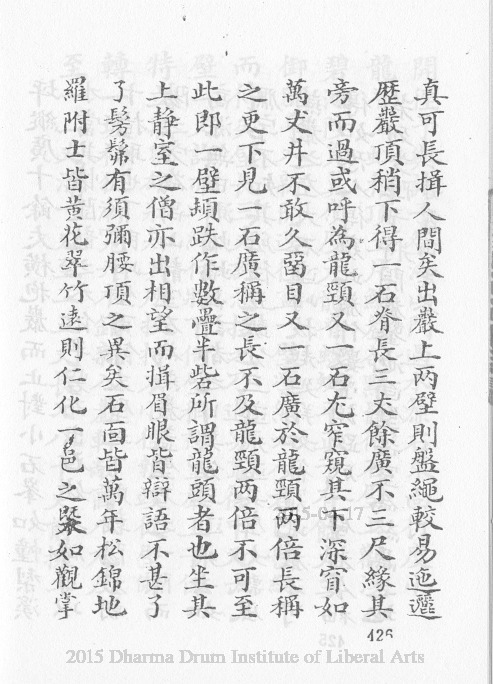 真可長揖人間矣出巖上两壁則盤繩較易迤邐
歷巖頂稍下得一石脊長三丈餘廣不三尺緣其
旁而過或呼為龍頸又一石尤窄窺其下深窅如
萬丈井不敢久留目又一石廣於龍頸两倍長稱
之更下見一石廣稱之長不及龍頸两倍不可至
此即一壁頓跌作數疊半砦所謂龍頭者也坐其
上靜室之僧亦出相望而揖眉眼皆辯語不甚了
了髣髴有須彌腰頂之異矣石面皆萬年松錦地
羅附士皆黃花翠竹遠則仁化一邑之槩如觀掌
426
2015 Dharma Drum Institute of Liberal Arts